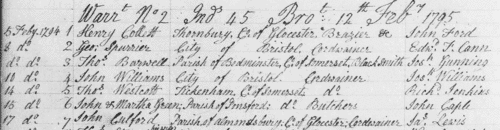 Warrt. No 2 Ind 45 Brot. 12th Feby 1795
5 Feby. 1794 1 Henry Collett Thornbury, Co. of Glocester Brazier & John Ford
8 do. 2 Geo. Spurrier City of Bristol Cordwainer Edwd. T. Cann
do. do. 3 Thos. Barwell Parish of Bedminster, C. of Somerset, Black Smith Jos. Gunning
10 do. 4 John Williams City of Bristol Cordwainer Jos. Williams
14 do. 5 Thos. Westcott Tickenham, C. of Somerset do. Richd. Jenkins
15 do. 6 John & Martha Green, Parish of do. Butchers John Cable
17 do. 7 John Parish of Almondsbury, C. of Glocester, Cordwainer Jas. Lewis